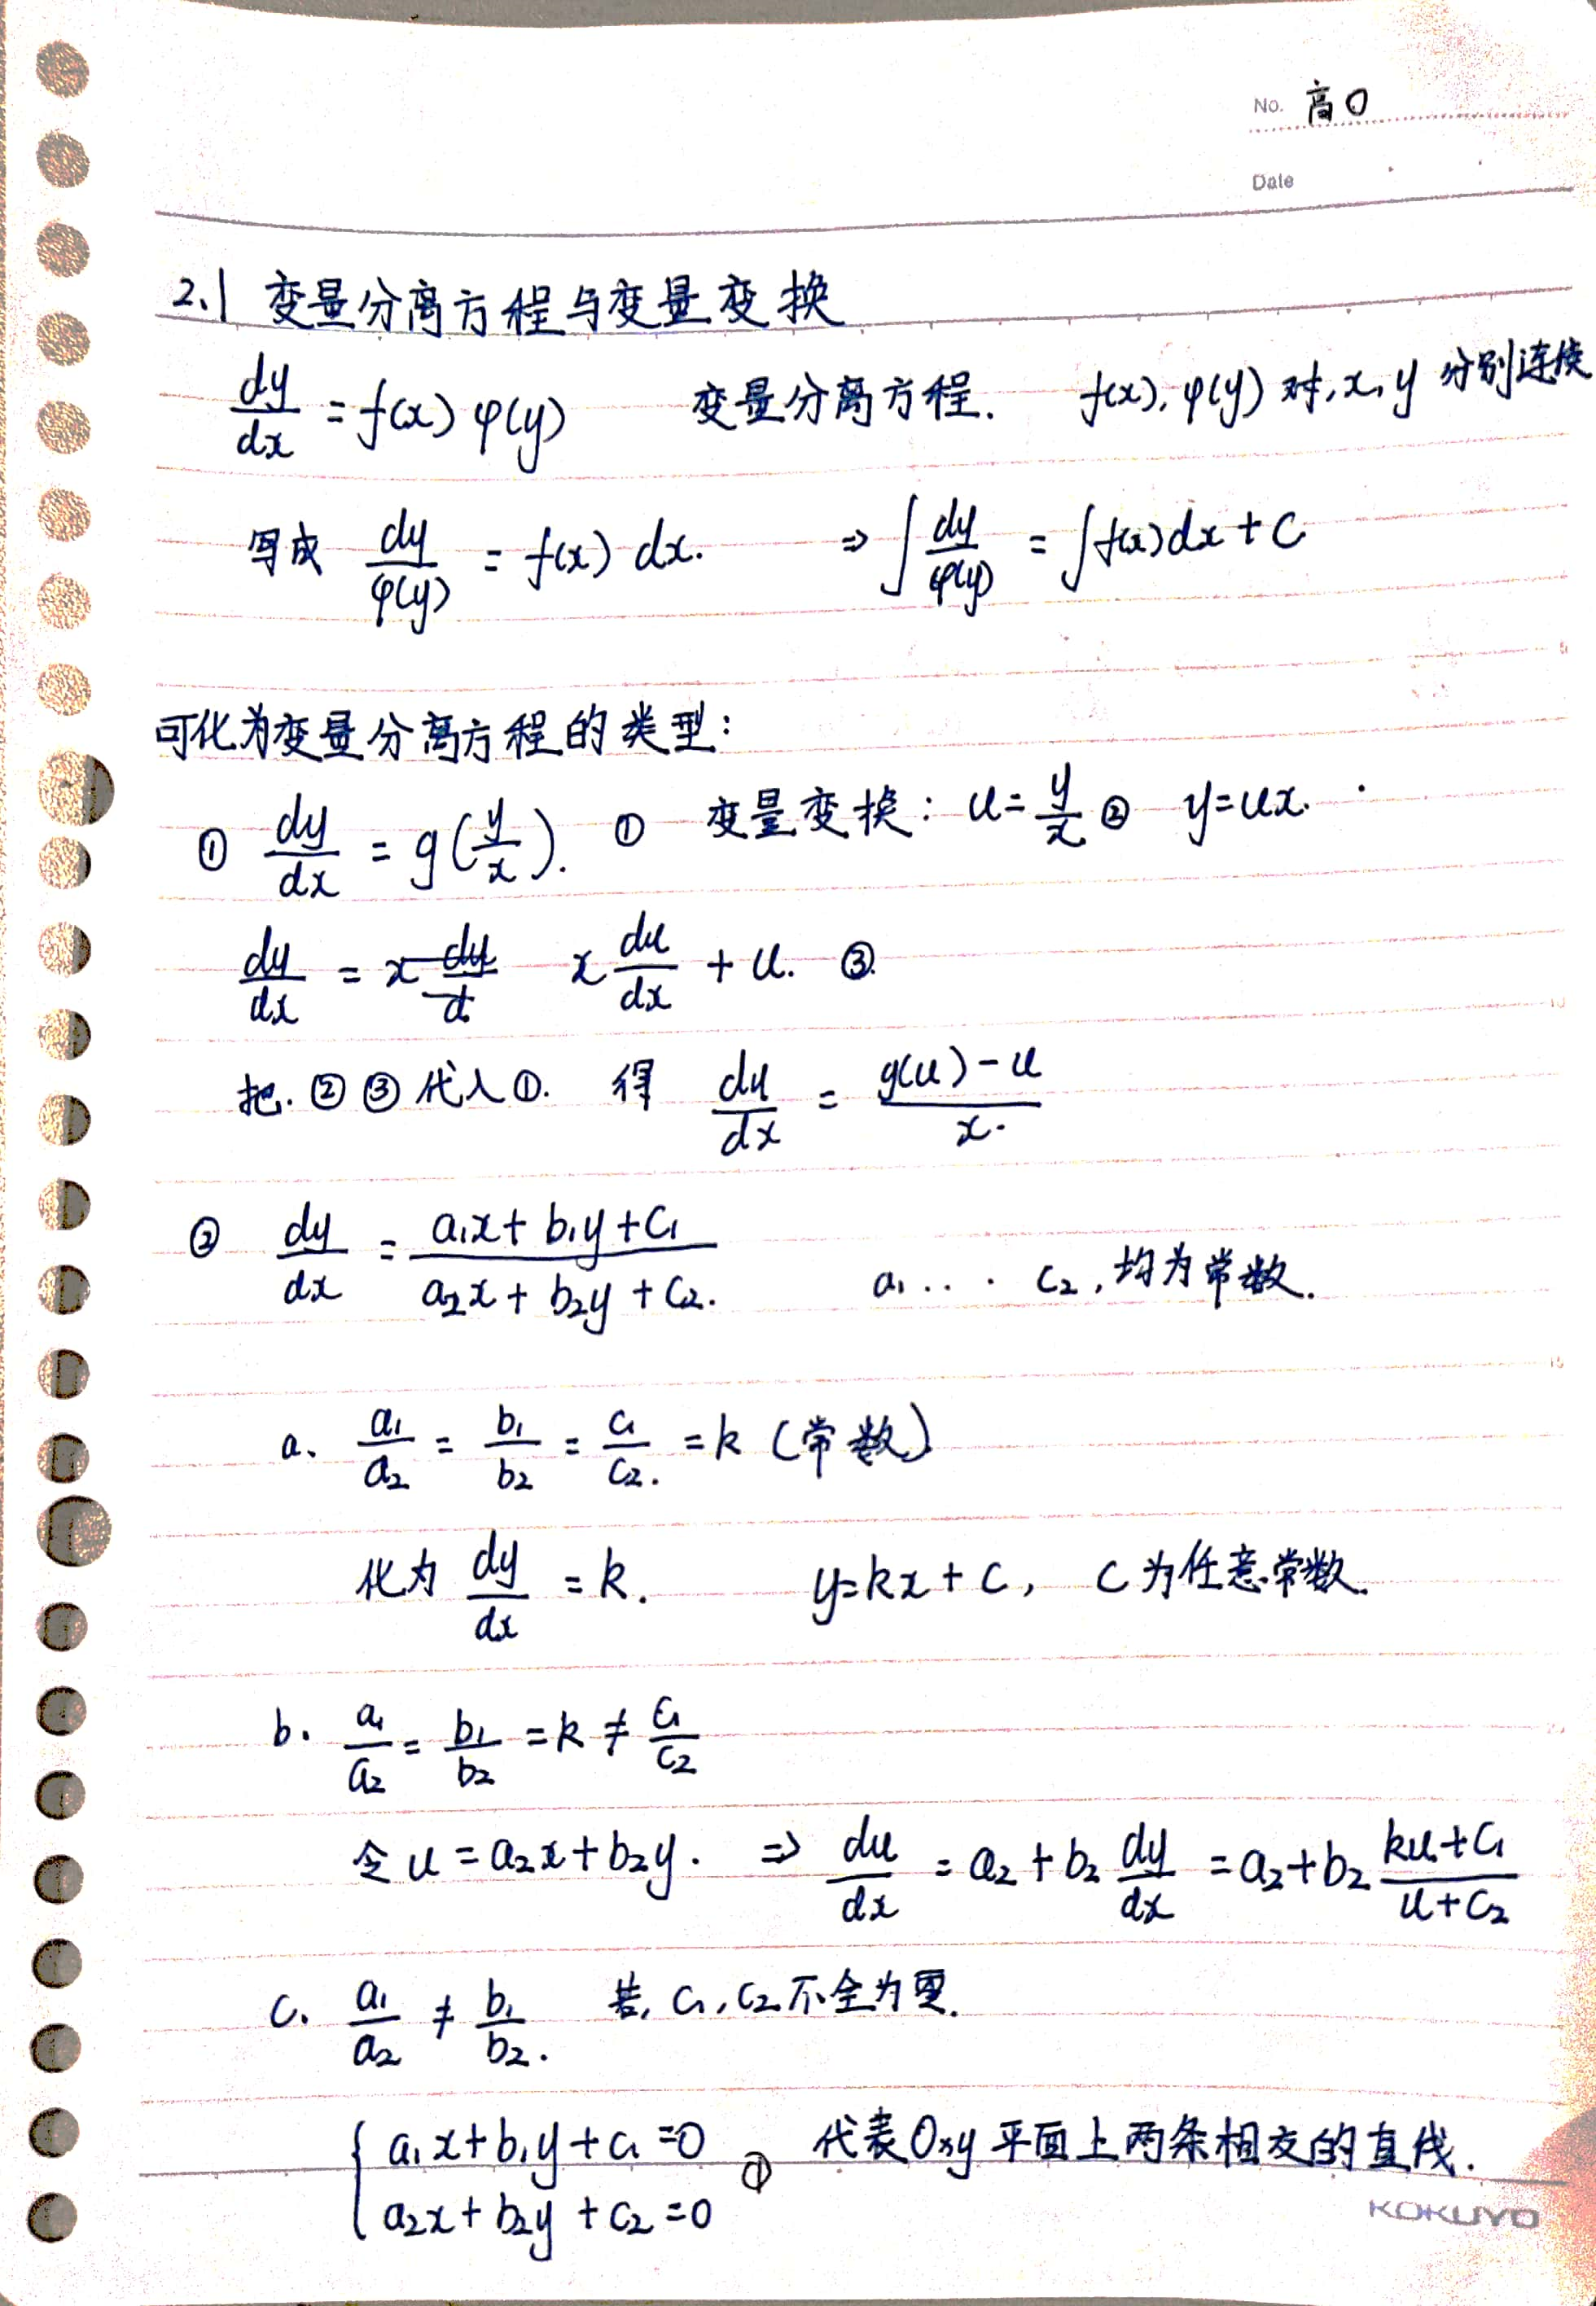 No. 高〇
Date
2.1 变量分离方程与变量变换
dy/dx = f(x) φ(y) 变量分离方程. f(x), φ(y) 对, x, y 分别连续
写成 dy/φ(y) = f(x) dx. ⇒ ∫ dy/φ(y) = ∫ f(x) dx + C
可化为变量分离方程的类型:
① dy/dx = g(y/x). ① 变量变换: u = y/x ② y = ux.
dy/dx = x du/dx + u. ③
把. ② ③ 代入 ①. 得 du/dx = (g(u) - u)/x.
② dy/dx = (a₁x + b₁y + c₁)/(a₂x + b₂y + c₂). a₁ ... c₂, 均为常数.
a、 a₁/a₂ = b₁/b₂ = c₁/c₂. = k (常数)
化为 dy/dx = k. y = kx + c, c 为任意常数.
b. a₁/a₂ = b₁/b₂ = k ≠ c₁/c₂
令 u = a₂x + b₂y. ⇒ du/dx = a₂ + b₂ dy/dx = a₂ + b₂ (ku + c₁)/(u + c₂)
c. a₁/a₂ ≠ b₁/b₂. 若, c₁, c₂ 不全为零.
{ a₁x + b₁y + c₁ = 0 ① 代表 Oxy 平面上两条相交的直线.
a₂x + b₂y + c₂ = 0
KOKUYO